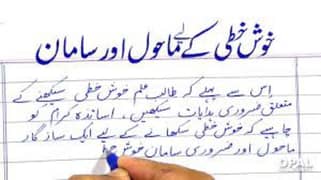 خوش خطی کے لیے ماحول اور سامان
اس سے پہلے کہ طالب علم خوش خطی سیکھنے کے
متعلق ضروری ہدایات سیکھیں۔ اساتذہ کرام کو
چاہیے کہ خوش خطی سکھانے کے لیے ایک ساز گار
ماحول اور ضروری سامان خوش
DPAL